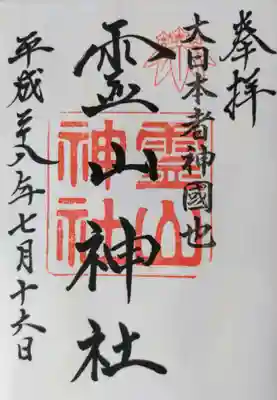 奉拝
大日本者神國也
霊山神社
霊山神社
平成廿八年七月十六日